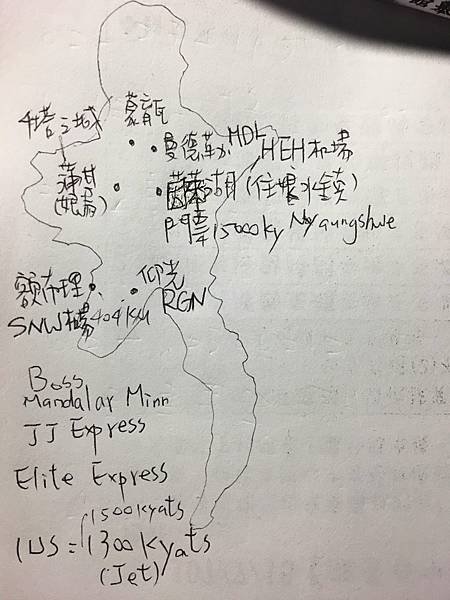 千塔之城
蒙育瓦
曼德勒 MDL
HEH機場
蒲甘
(娘烏)
茵萊湖(住娘水鎮)
門票15000ky Nyaungshwe
額布理
仰光
RGN
SNW機場404km
Boss
Mandalar Minn
JJ Express
Elite Express
1500kyats
1US=1300kyats
(Jet)